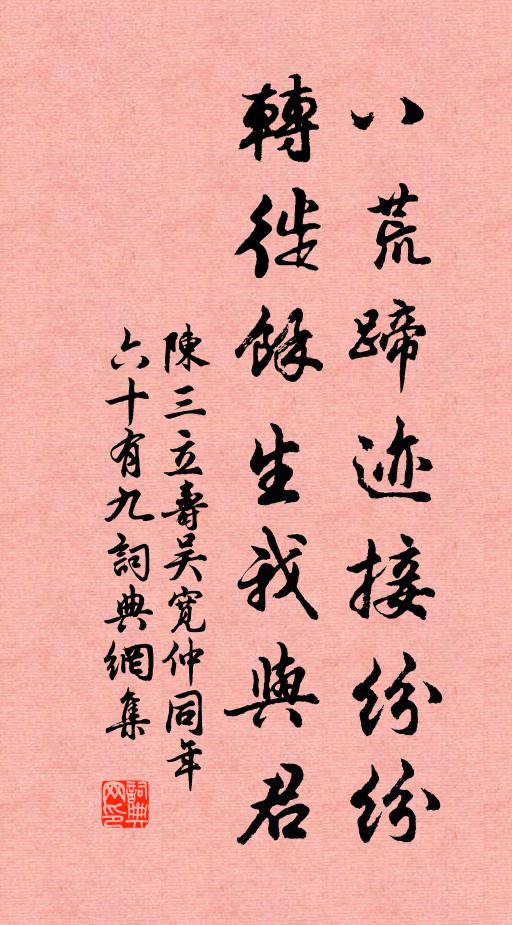 八荒蹄迹接紛紛
轉徙餘生我與君
陳三立壽吳寬仲同年
六十有九詞典網集
詞典
网印